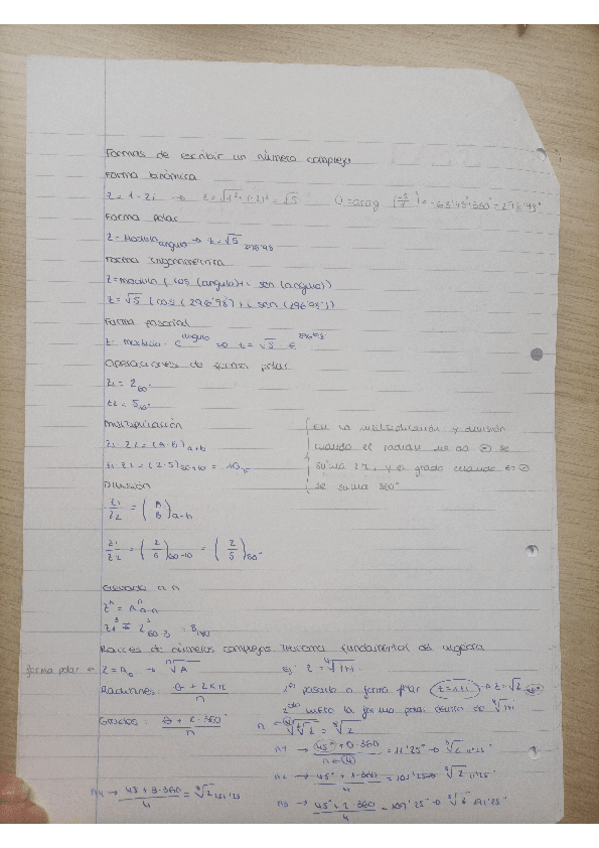 Formas de escribir un número complejo
Forma binómica
z = 1 - 2i → z = √1²+(-2)² = √5    = arctag (-2/1) = -63'43+360 = 296'98°
Forma polar
z = Modulo angulo → z = √5 296'98
Forma trigonometrica
z = modulo (cos (angulo) + i sen (angulo))
z = √5 (cos (296'98) + i sen (296'98))
Forma
z = modulo · e^angulo → z = √5 · e^296'98
Operaciones de forma polar
z1 = 2 60°
z2 = 5 10°
Multiplicación
z1 · z2 = (A·B) a+b
z1 · z2 = (2·5) 60+10 = 10
División
z1/z2 = (A/B) a-b
z1/z2 = (2/5) 60-10 = (2/5)
En la multiplicación y división
cuando el radian me da ⊖ se
suma 2π, y el grado cuando es ⊖
se suma 360°
Elevado a n
z^n = A^n a·n
z1^3 = 2^3 60·3 = 8 180
Raices de números complejos Teorema fundamental del algebra
forma polar ← z = A → ⁿ√A    ej: z = ⁴√1+i
Radianes: θ + 2Kπ / n    1º pasarlo a forma polar z=1+i → z = √2 45°
Grados: θ + K·360° / n    2do meto la forma polar dentro de ⁴√1+i
n ⁴√√2 = ⁸√2
n1 → 45° + 0·360 / n=(4) = 11'25° → ⁸√2 11'25°
n2 → 45° + 1·360 / 4 = 101'25° → ⁸√2
n3 → 45° + 2·360 / 4 = 191'25° → 191'25°
n4 → 45 + 3·360 / 4 = ⁸√2